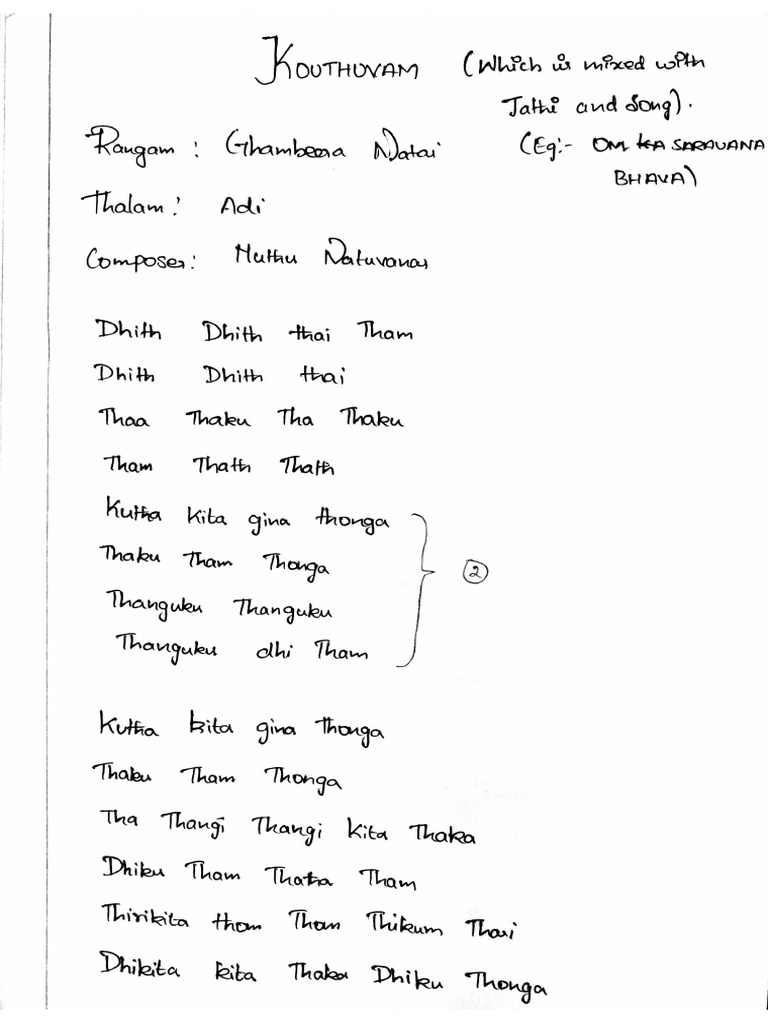 KOUTHUVAM (Which is mixed with
Jathi and Song).
(Eg:- OM KA SARAVANA
BHAVA)
Rangam : Ghambeera Natai
Thalam : Adi
Composer : Muthu Natuvanar
Dhith Dhith thai Tham
Dhith Dhith thai
Thaa Thaku Tha Thaku
Tham Thath Thath
Kutha kita gina thonga
Thaku Tham Thonga
Thanguku Thanguku
Thanguku dhi Tham
2
Kutha kita gina Thonga
Thaku Tham Thonga
Tha Thangi Thangi kita Thaka
Dhiku Tham Thatha Tham
Thirikita thom Thom Thikum Thari
Dhikita kita Thaka Dhiku Thonga